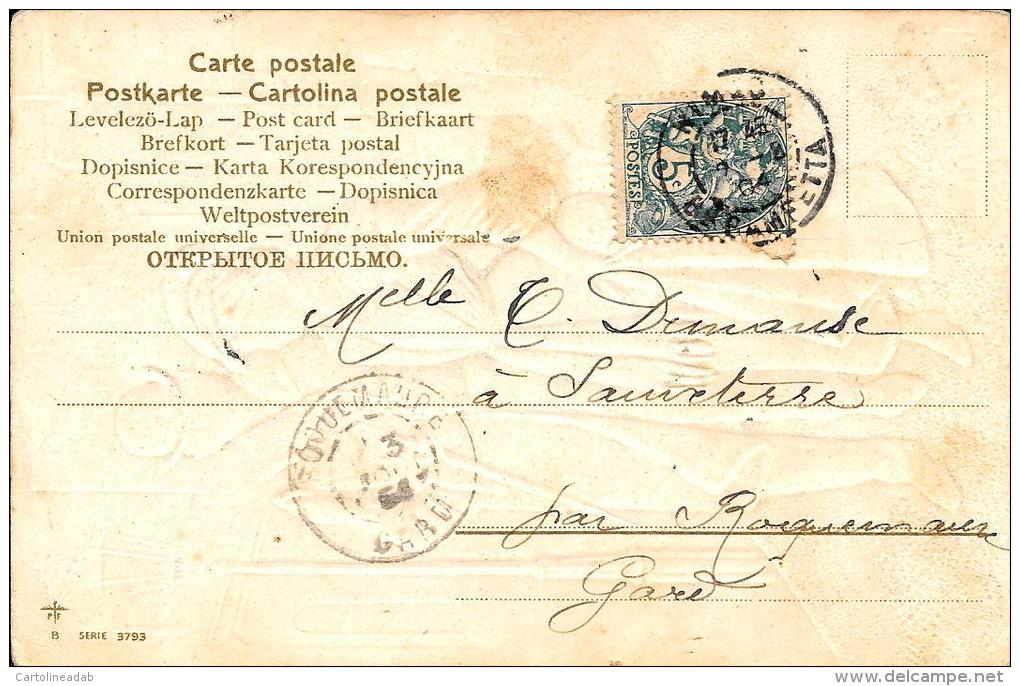 Carte postale
Postkarte — Cartolina postale
Levelezö-Lap — Post card — Briefkaart
Brefkort — Tarjeta postal
Dopisnice — Karta Korespondencyjna
Correspondenzkarte — Dopisnica
Weltpostverein
Union postale universelle — Unione postale universale
ОТКРЫТОЕ ПИСЬМО.
5
POSTES
Melle C. Dumanse
à Sauveterre
par Roquemaure
Gard
ROQUEMAURE
3
GARD
PF
B SERIE 3793
Cartolineadab
www.delcampe.net